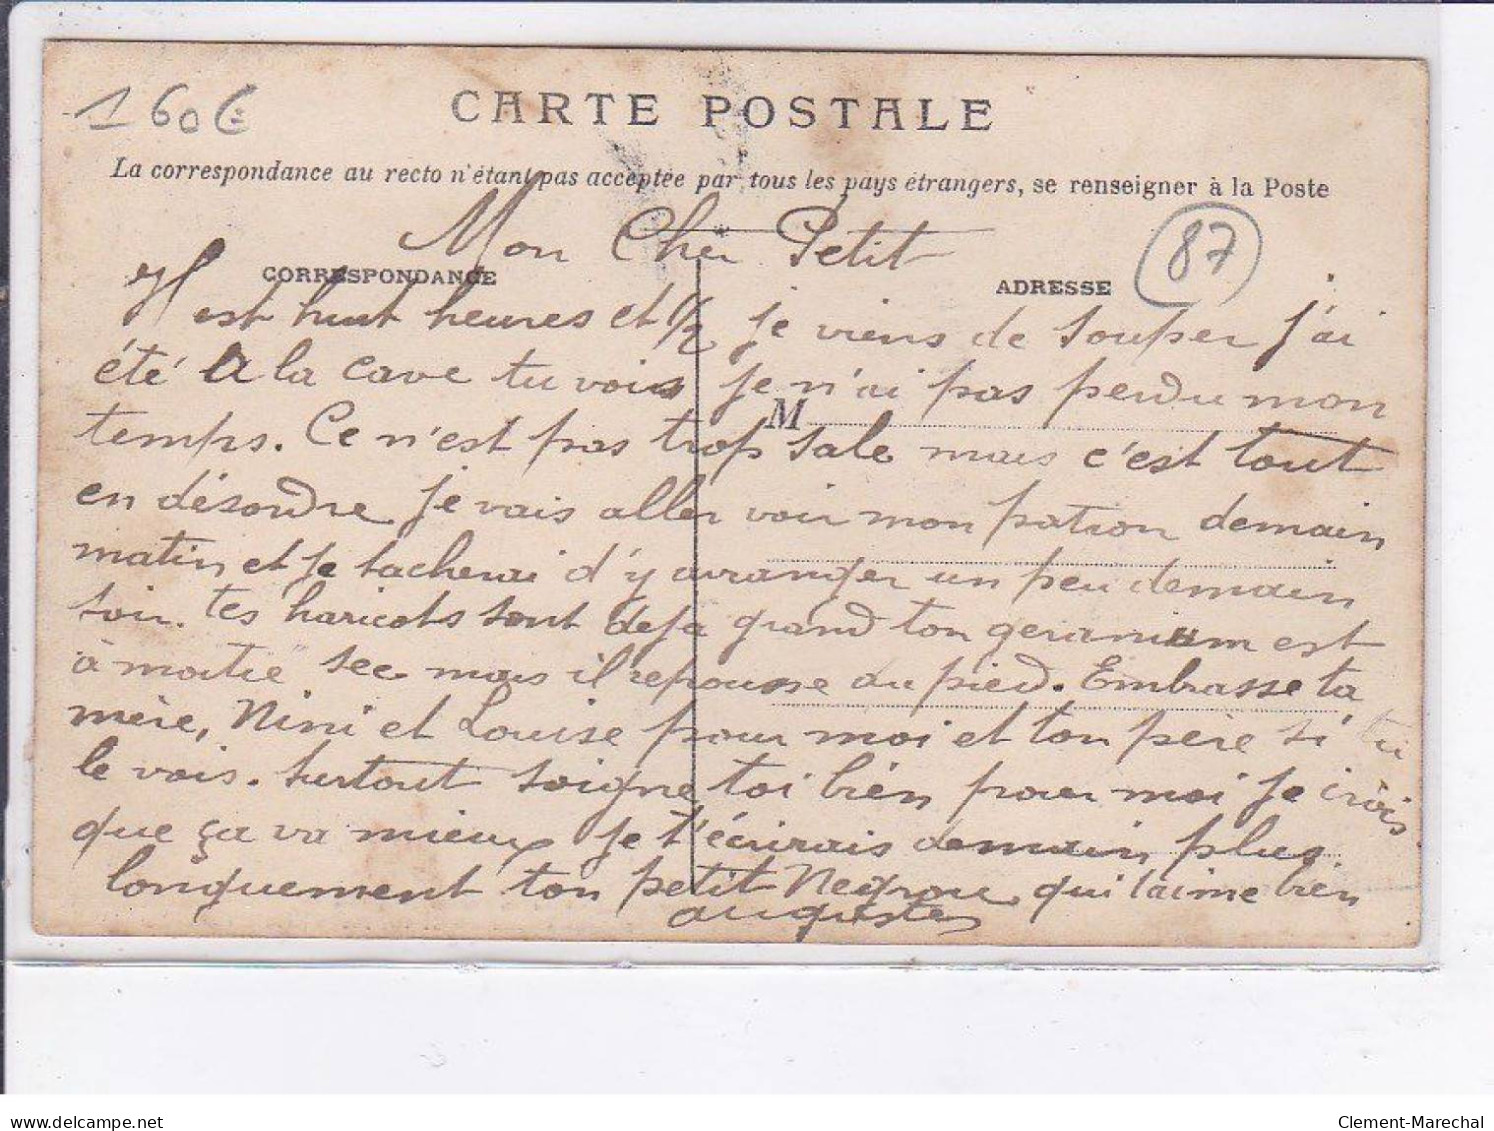 160€
CARTE POSTALE
La correspondance au recto n'étant pas acceptée par tous les pays étrangers, se renseigner à la Poste
Mon Cher Petit
87
CORRESPONDANCE
ADRESSE
Il est huit heures et 1/2 je viens de souper j'ai
été a la cave tu vois je n'ai pas perdu mon
M
temps. Ce n'est pas trop sale mais c'est tout
en désordre je vais aller voir mon patron demain
matin et je tacherai d'y arranger un peu demain
soir. tes haricots sont deja grand ton geranium est
à moitié sec mais il repousse au pied. Embrasse ta
mère, Nini et Louise pour moi et ton père si tu
le vois. surtout soigne toi bien pour moi je crois
que ça va mieux je t'écrirais demain plus
longuement ton petit Negrou qui t'aime bien
auguste
delcampe.net
Clement-Marechal